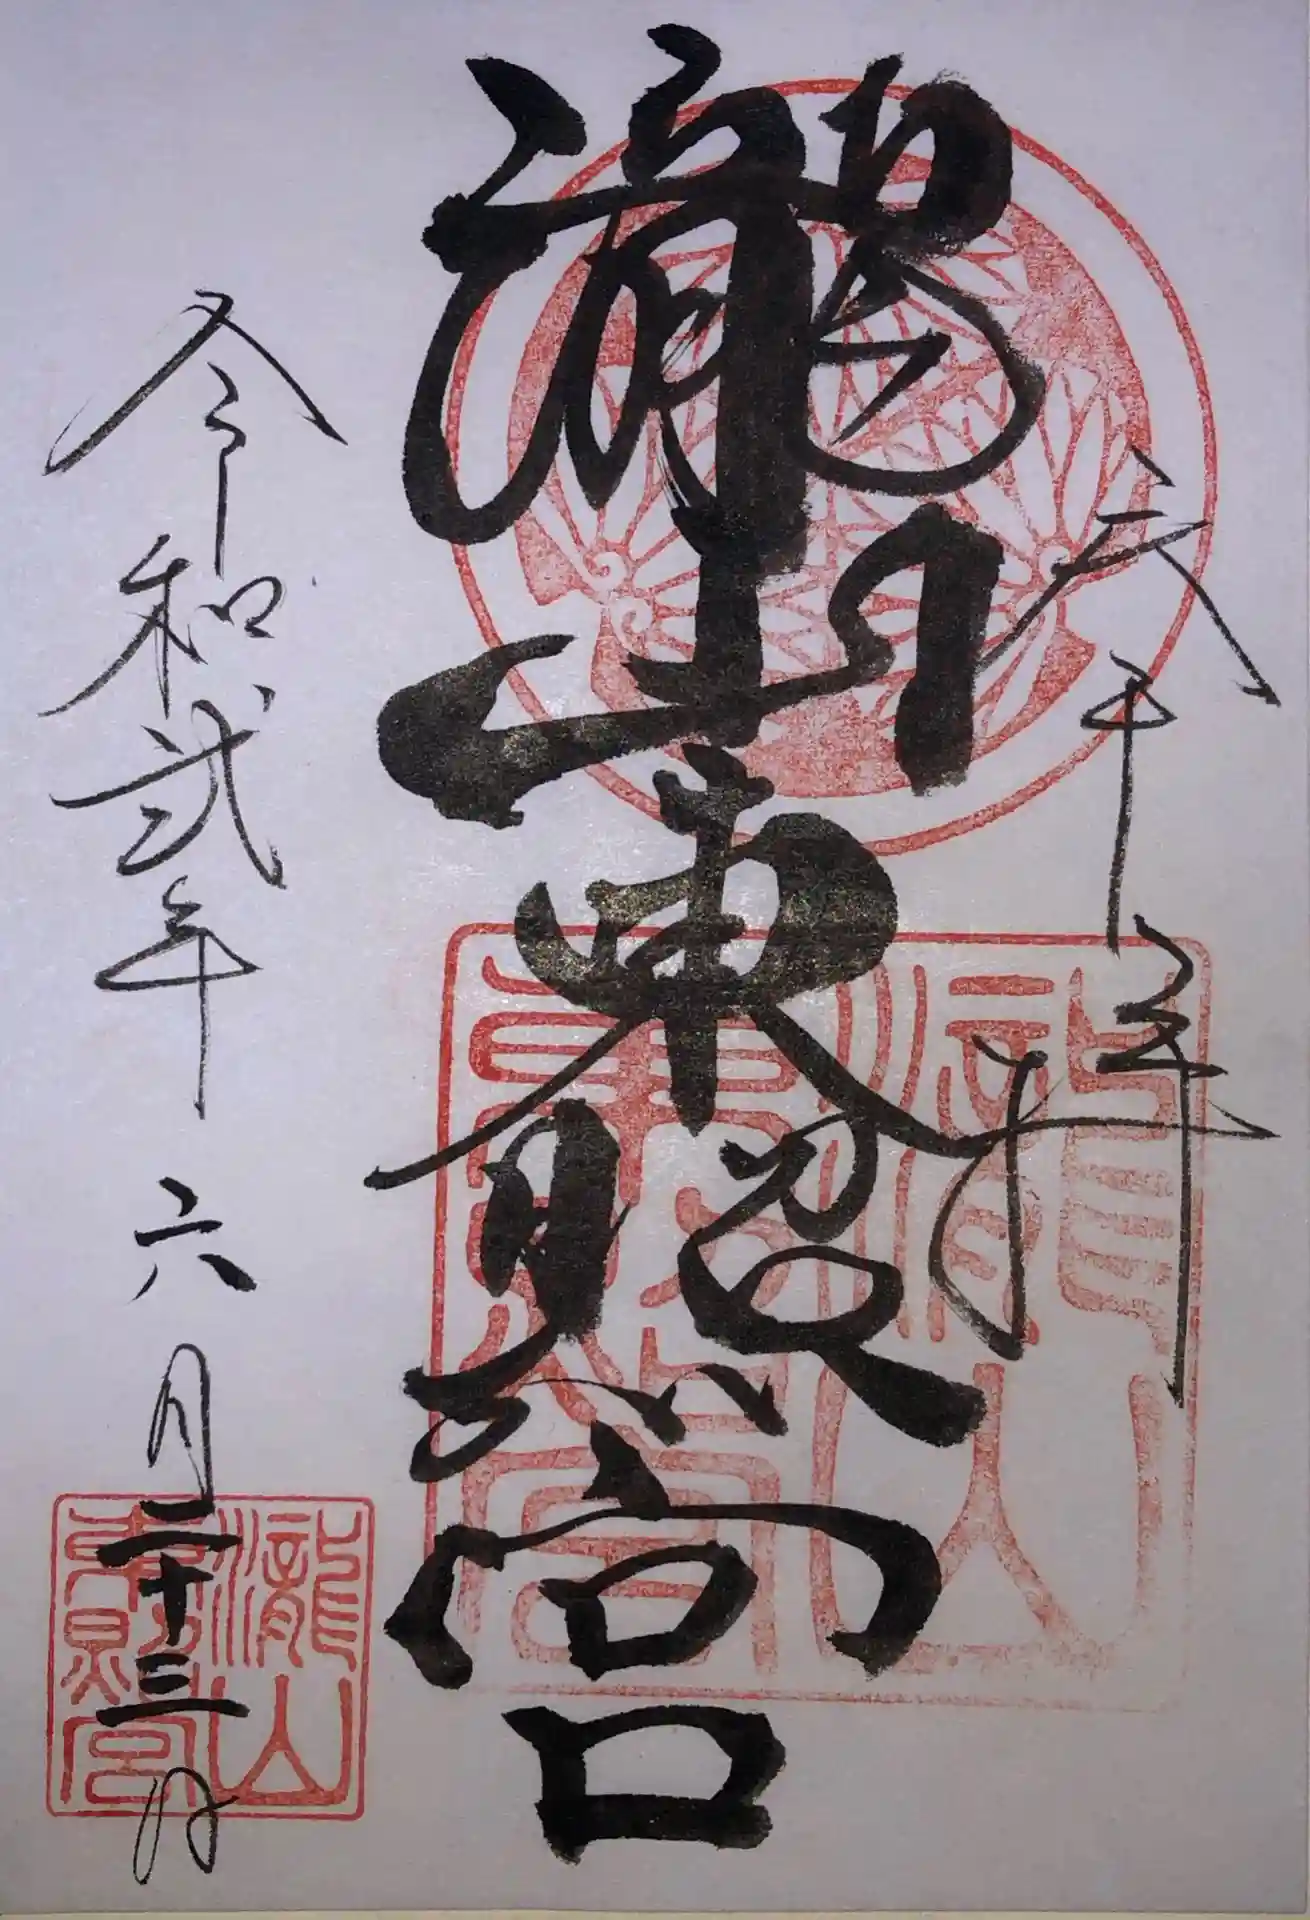 奉拝
瀧山東照宮
令和弐年六月二十三日
瀧山
東照宮
瀧山
東照宮